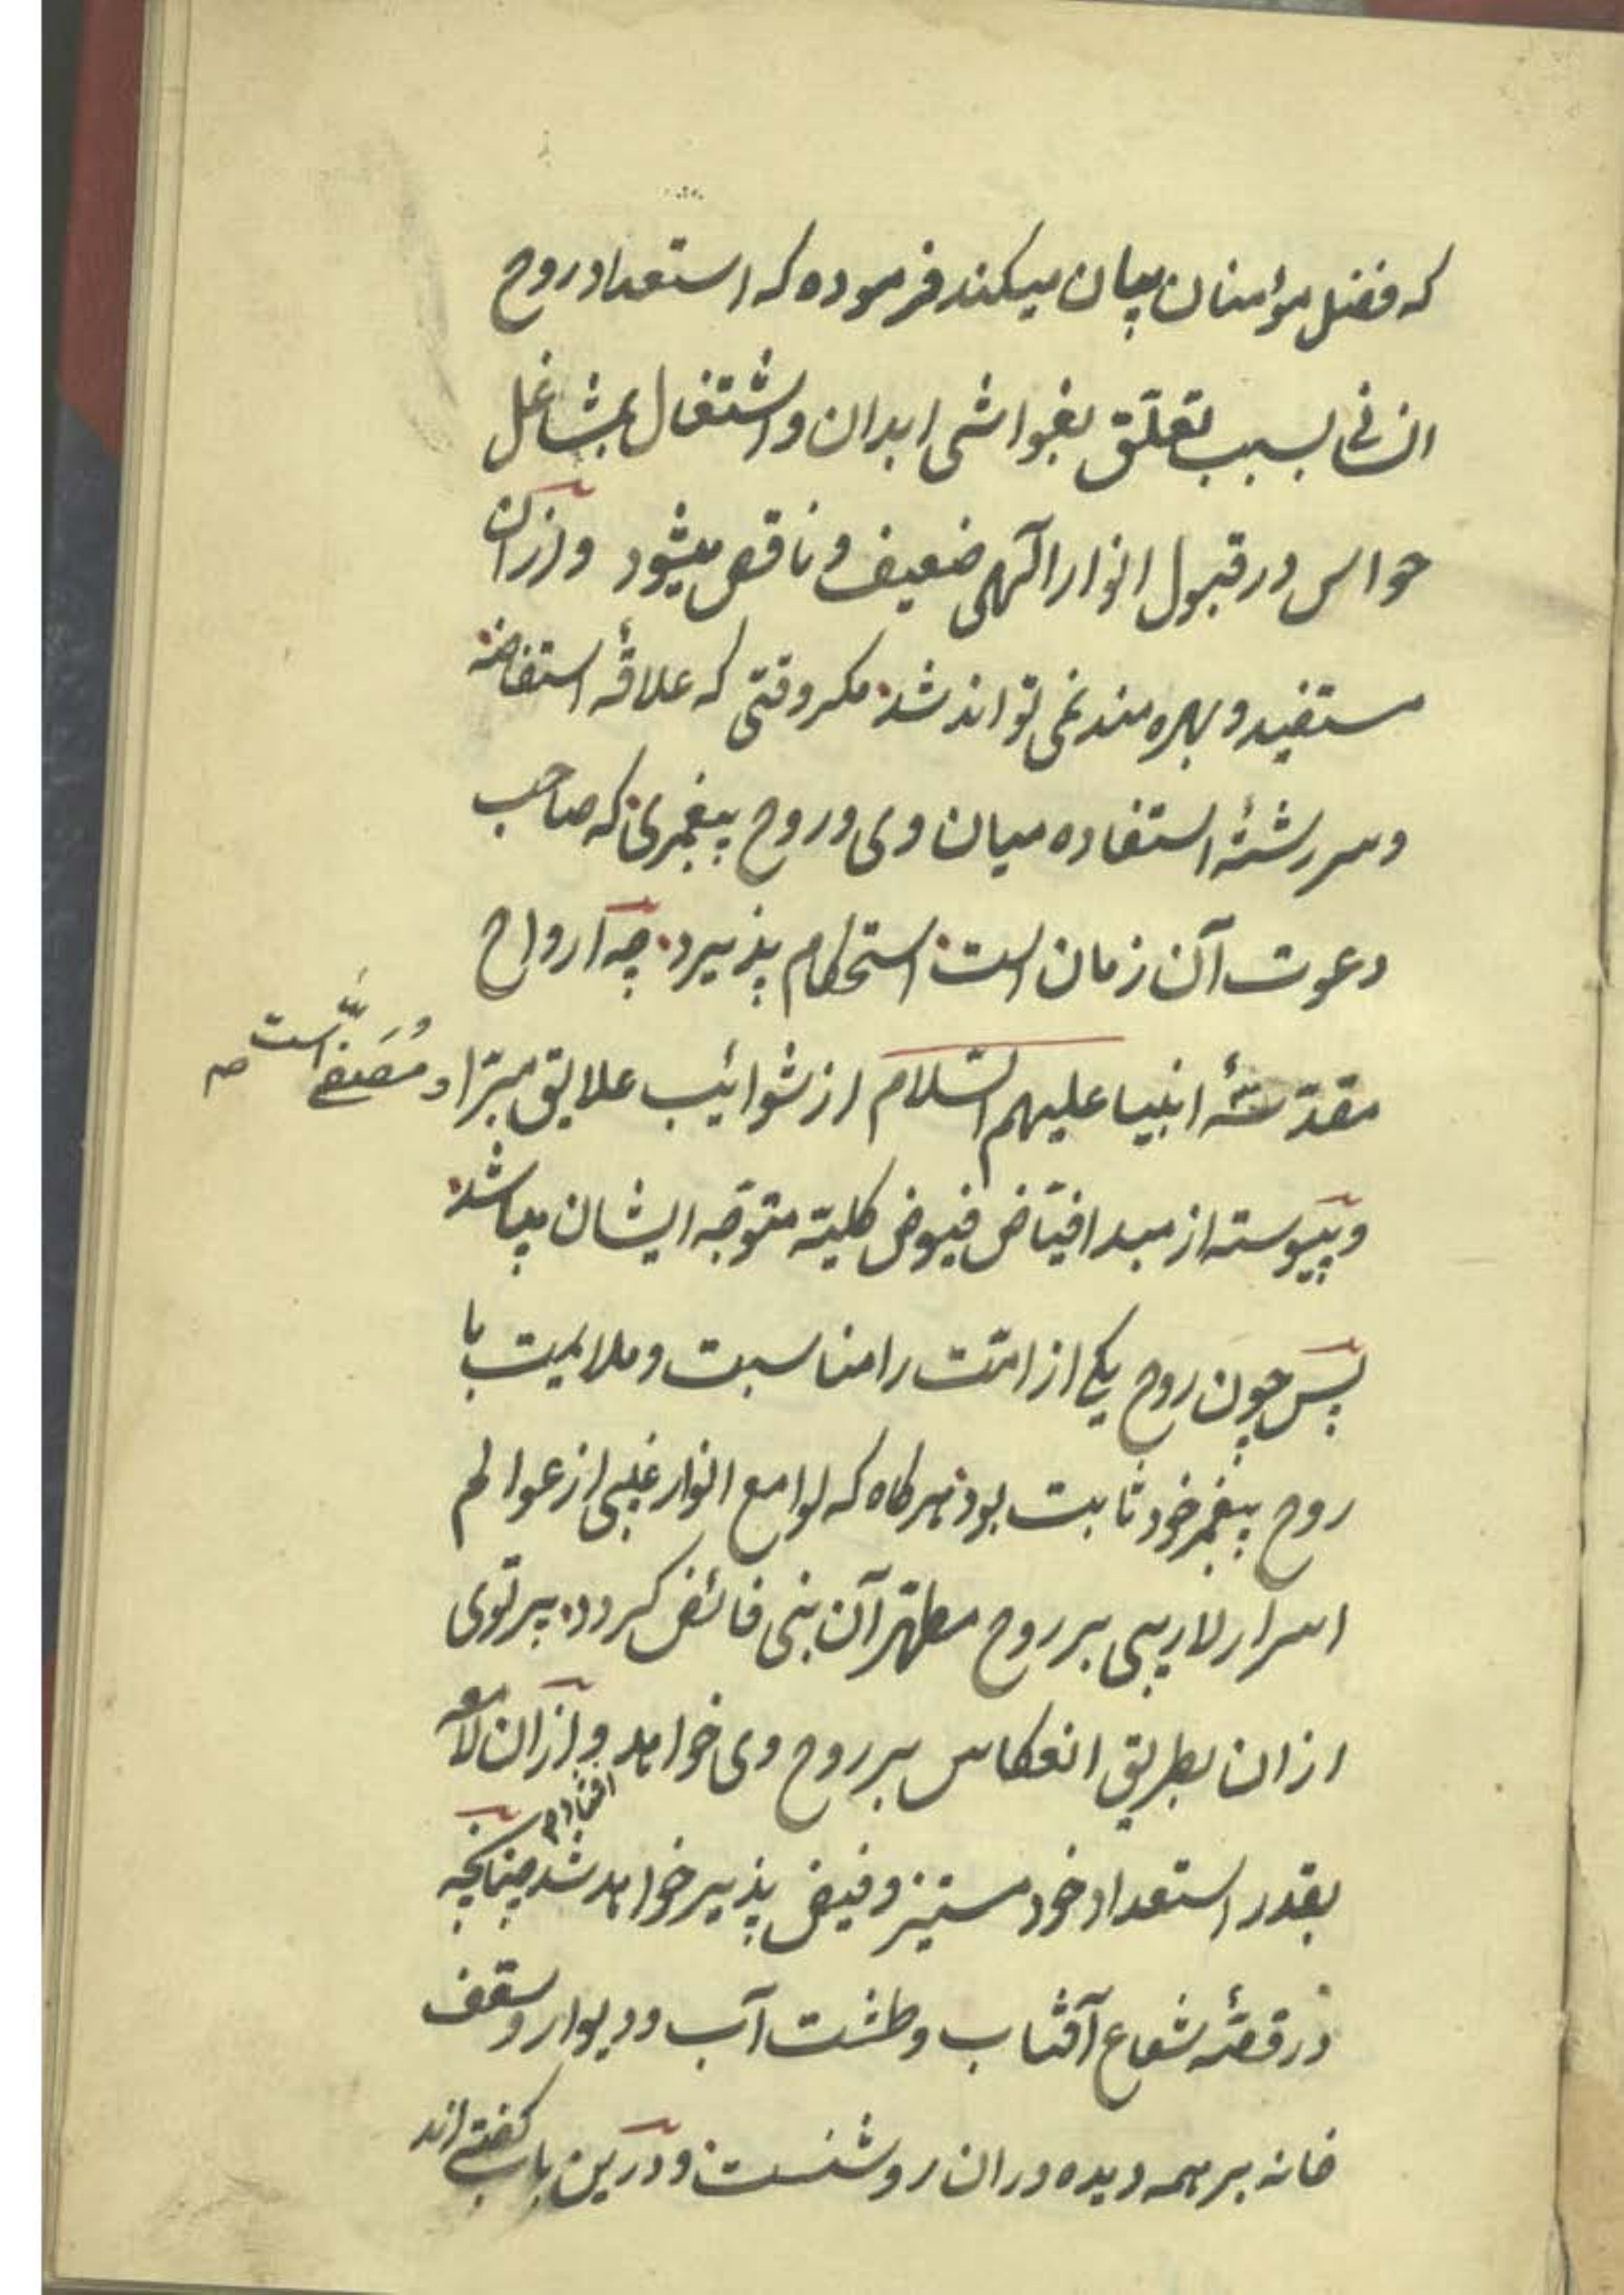 که فضل مؤمنان بیان میکند فرموده که استعداد روح
انسانی بسبب تعلّق بغواشی ابدان و اشتغال بمشاغل
حواس در قبول انوار الٓهی ضعیف و ناقص میشود و ازان
مستفید و بهره مند نمی تواند شد مکر وقتی که علاقهٔ استفاضه
و سررشتهٔ استفاده میان وی و روح پیغمبری که صاحب
دعوت آن زمان است استحکام پذیرد چه ارواح
مقدّسهٔ انبیا علیهم السّلام از شوائیب علایق مبرّا و مُصَفّی است
و پیوسته از مبدا فیّاض فیوض کلیّه متوجّه ایشان میباشد
پس چون روح یکی از امّت را مناسبت و ملایمت با
روح پیغمبر خود ثابت بود هرکاه که لوامع انوار غیبی از عوالم
اسرار لاریبی بر روح مطهّر آن نبی فائض کردد پرتوی
ازان بطریق انعکاس بر روح وی خواهد افتاد و ازان لامعه
بقدر استعداد خود مستنیر و فیض پذیر خواهد شد چنانچه
در قصّهٔ شعاع آفتاب و طشت آب و دیوار و سقف
خانه بر همه دیده وران روشنست و درین باب کفته اند